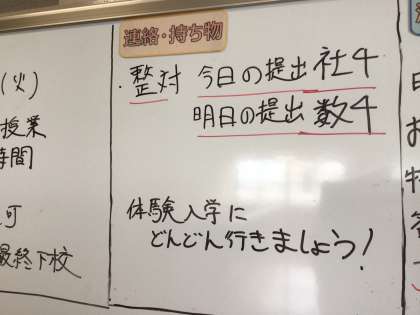 連絡・持ち物
(火)
授業
時間
可
最終下校
・整対 今日の提出 社4
明日の提出 数4
体験入学に
どんどん行きましょう!